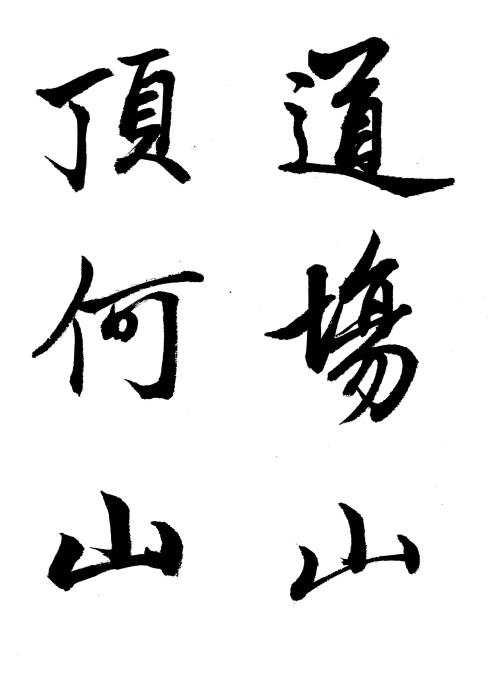 道場山
頂何山